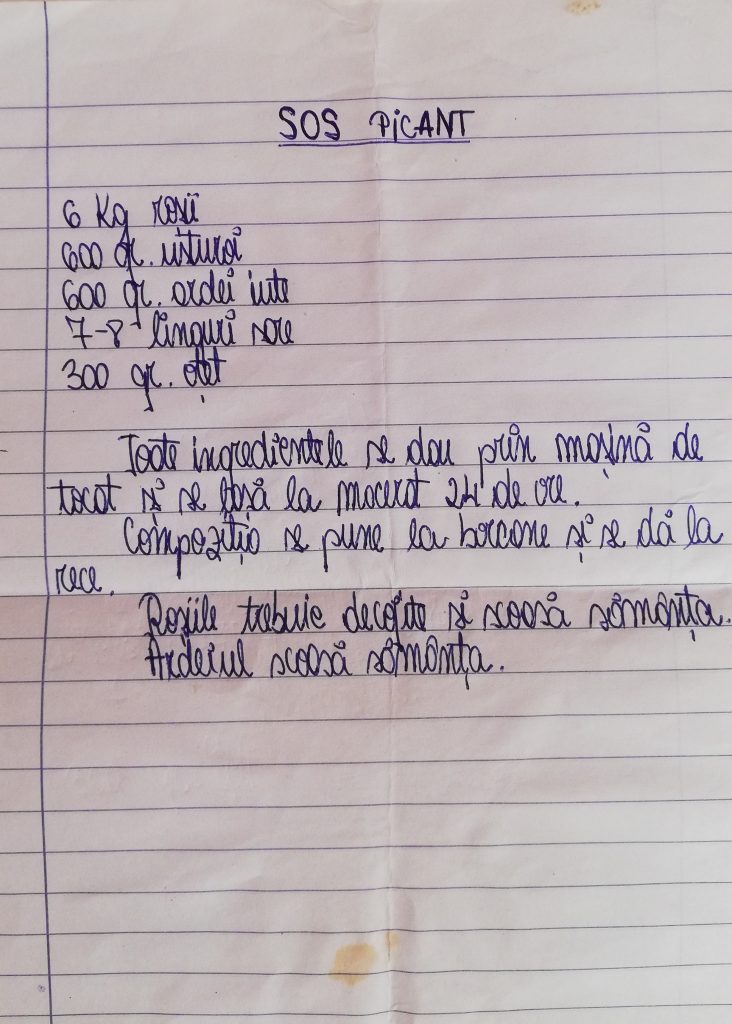 SOS PICANT
6 Kg roșii
600 gr. usturoi
600 gr. ardei iute
7-8 linguri sare
300 gr. oțet
Toate ingredientele se dau prin mașină de
tocat și se lasă la macerat 24 de ore.
Compoziția se pune la borcane și se dă la
rece.
Roșiile trebuie decojite si scoasă sămânța.
Ardeiul scoasă sămânța.